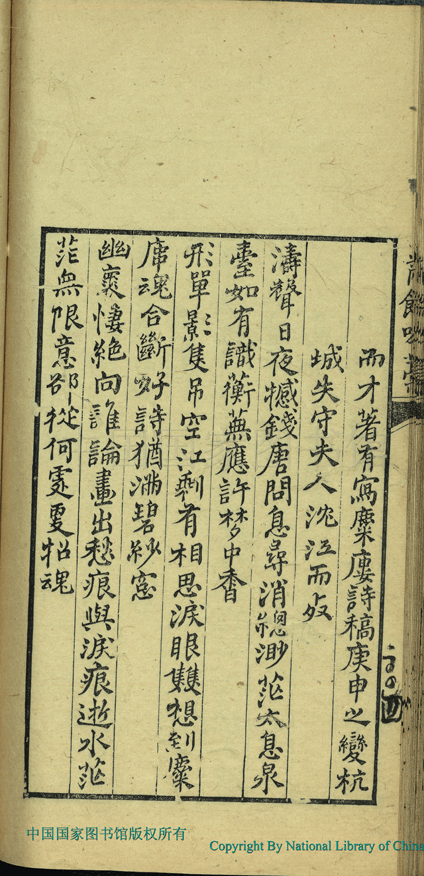 而才著有寫麋廎詩稿庚申之變杭
城失守夫人沈江而歿
濤聲日夜撼錢唐問息尋消總渺茫太息泉
臺如有識蘅蕪應許梦中香
形單影隻吊空江剩有相思淚眼雙想到麋
廎魂合斷好詩猶滿碧紗窓
幽褱悽絶向誰論畫出愁痕與淚痕逝水茫
茫無限意部從何處更招魂
中国国家图书馆版权所有
Copyright By National Library of China